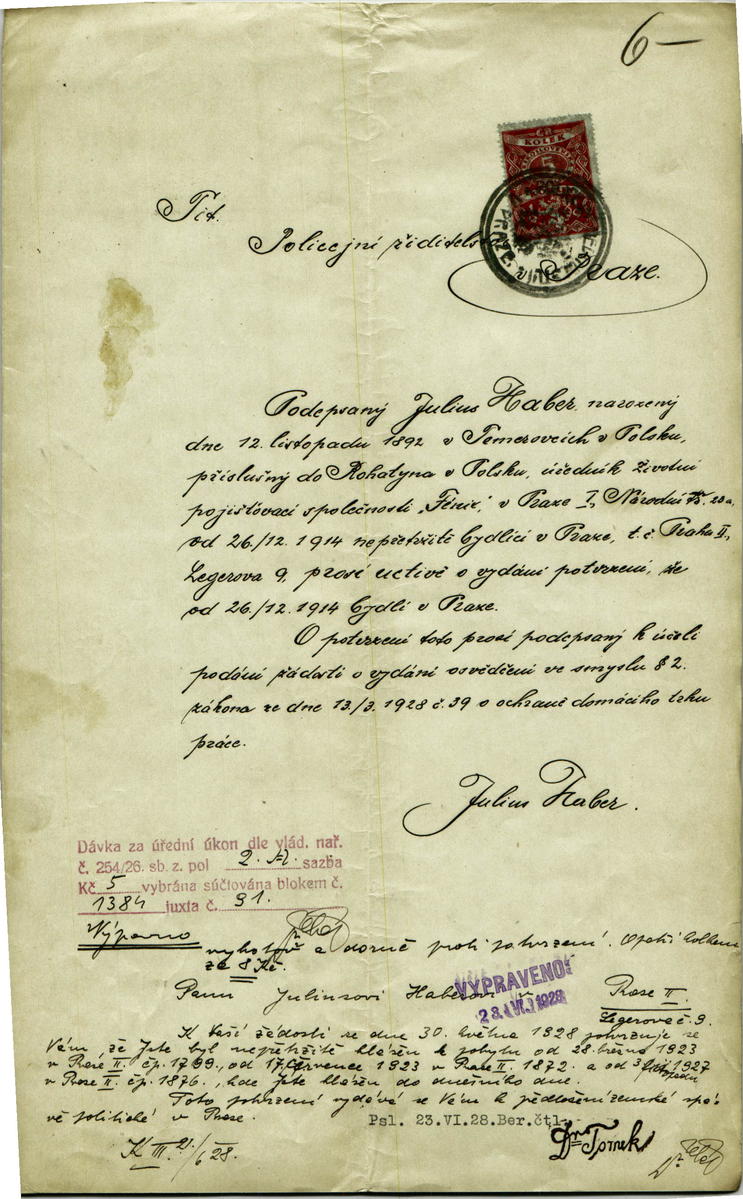 6—
KOLEK
5
Tit.
Policejní ředitelství
v Praze.
Podepsaný Julius Haber, narozený
dne 12. listopadu 1892 v Temerovcích v Polsku,
příslušný do Rohatyna v Polsku, úředník životní
pojišťovací společnosti „Fénix“, v Praze I., Národní tř.
od 26./12. 1914 nepřetržitě bydlící v Praze, t. č. Praha II.,
Legerova 9, prosí uctivě o vydání potvrzení, že
od 26./12. 1914 bydlí v Praze.
O potvrzení toto prosí podepsaný k účeli
podání žádosti o vydání osvědčení ve smyslu § 2.
zákona ze dne 13./3. 1928 č. 39 o ochraně domácího trhu
práce.
Julius Haber.
Dávka za úřední úkon dle vlád. nař.
č. 254/26. sb. z. pol 2. A. sazba
Kč 5 vybrána súčtována blokem č.
1384 juxta č. 91.
Výparno
a proti potvrzení. Opatří kolkem
za 8 Kč.
VYPRAVENO:
23. VI. 1928
Panu Juliusovi Haberovi v Praze II.
Legerova č. 9.
K Vaší žádosti ze dne 30. května 1928 potvrzuje se
Vám, že jste byl nepřetržitě hlášen k pobytu od 28. března 1923
v Praze II. čp. 1799., od 17. července 1923 v Praze II. 1872. a od 3. listopadu 1927
v Praze II. čp. 1876., kde jste hlášen do dnešního dne.
Toto potvrzení vydává se Vám k předložení zemské sprá-
vě politické v Praze.
Psl. 23.VI.28.Ber.čtl.
K III. 21./6 28.
Dr Tomek